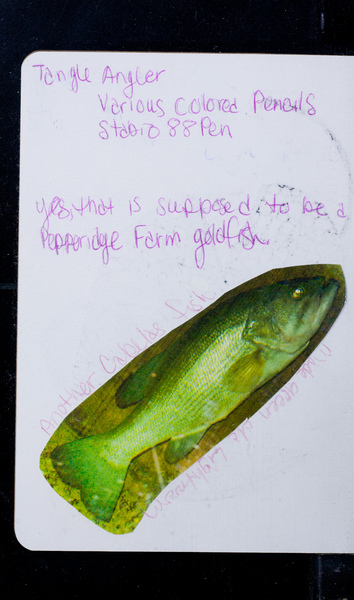 Tangle Angler
Various Colored Pencils
Stabilo 88 Pen
yes, that is supposed to be a
Pepperidge Farm goldfish.
Another Cabybe fish